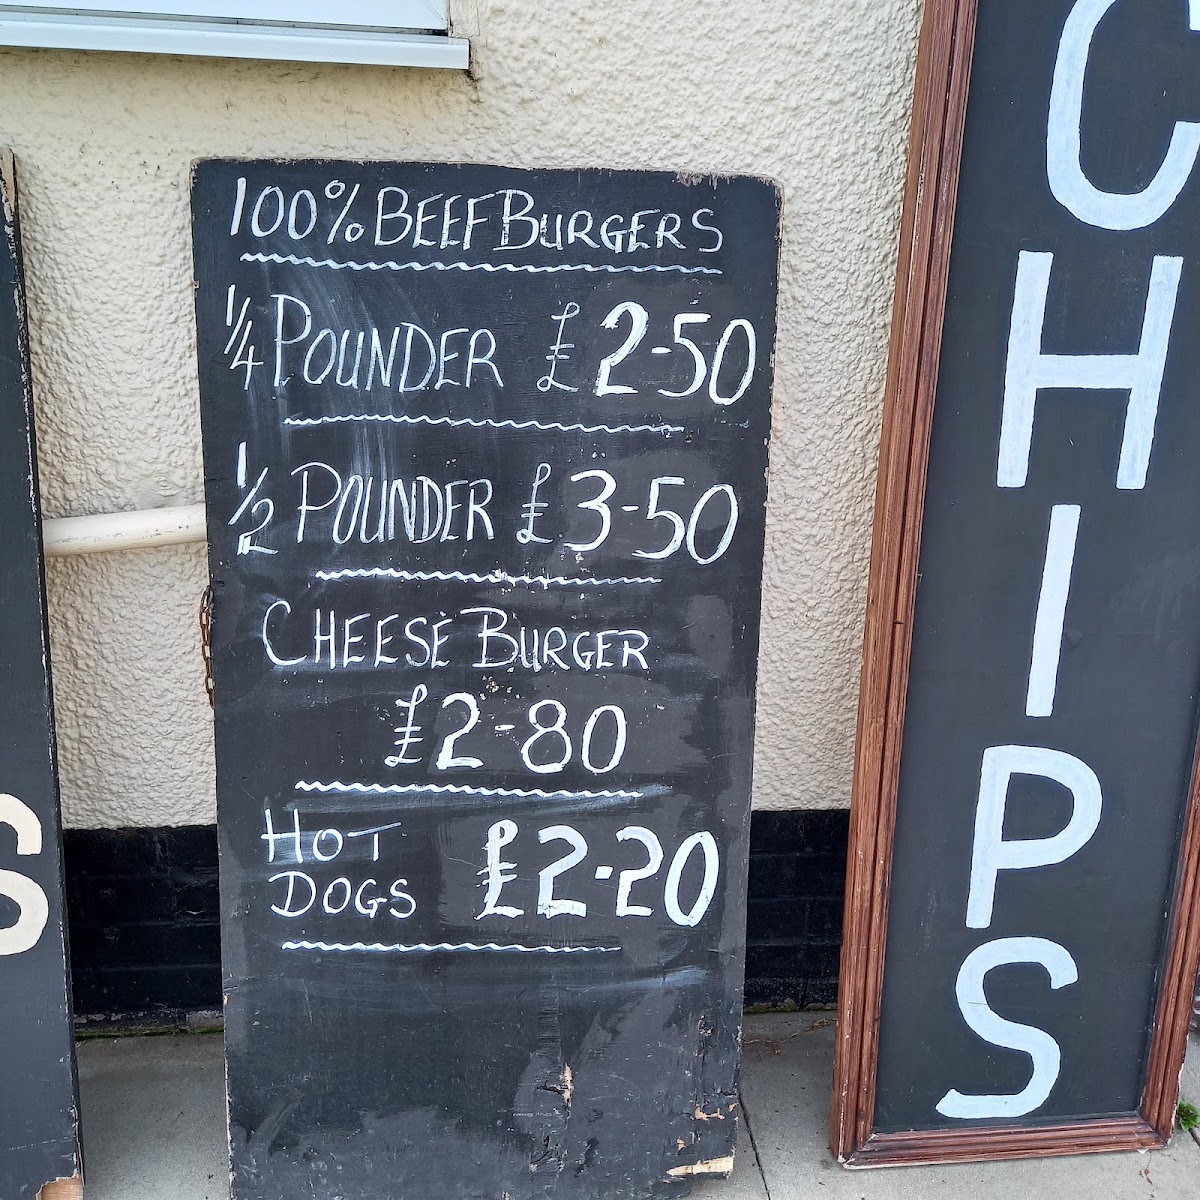 100% BEEF BURGERS
1/4 POUNDER £2-50
1/2 POUNDER £3-50
CHEESE BURGER
£2-80
HOT
DOGS £2-20
CHIPS
S